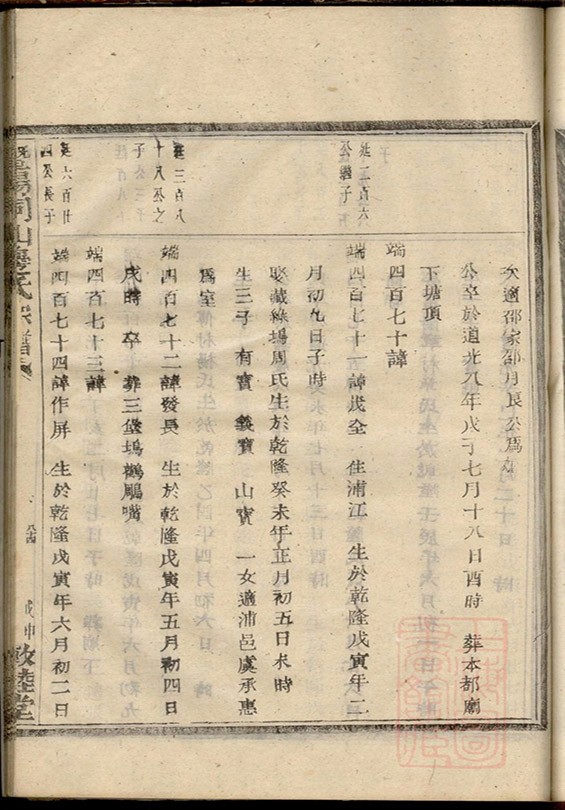 次適邵家邵月良公爲
公卒於道光八年戊子七月十八日酉時 葬本都廟
下塘頂
端四百七十諱
延二百六
公繼子
端四百七十一諱茂全 住浦江 生於乾隆戊寅年二
月初九日子時
娶藏綠塢周氏生於乾隆癸未年正月初五日未時
生三子 有寳 義寳 山寳 一女適浦邑虞承惠
爲室
延三百八
十八公之
子
端四百七十二諱發長 生於乾隆戊寅年五月初四日
戌時 卒 葬三堡塢鸛鵰嘴
端四百七十三諱
延六百廿
四公長子
端四百七十四諱作屏 生於乾隆戊寅年六月初二日
暨陽同山壽氏宗譜
戊申
敦睦堂